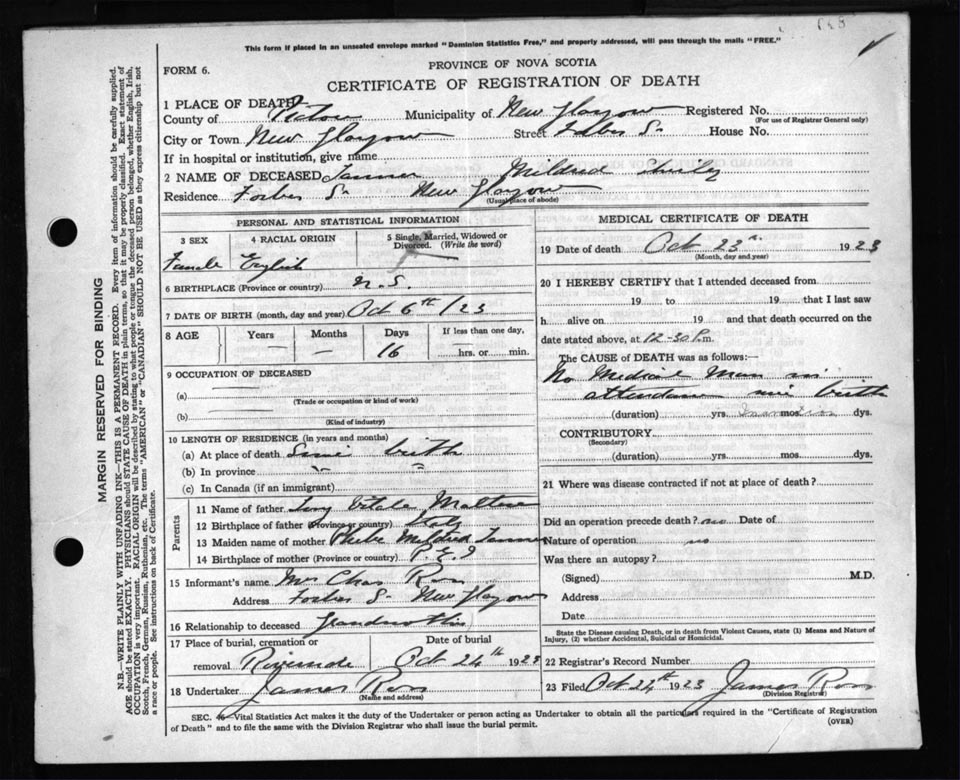 This form if placed in an unsealed envelope marked "Dominion Statistics Free," and properly addressed, will pass through the mails "FREE."
PROVINCE OF NOVA SCOTIA
FORM 6.
CERTIFICATE OF REGISTRATION OF DEATH
1 PLACE OF DEATH
County of Pictou Municipality of New Glasgow Registered No.
(For use of Registrar General only)
City or Town New Glasgow Street Forbes St House No.
If in hospital or institution, give name
2 NAME OF DECEASED Tanner Mildred Shirley
Residence Forbes St New Glasgow
(Usual place of abode)
PERSONAL AND STATISTICAL INFORMATION
3 SEX 4 RACIAL ORIGIN 5 Single, Married, Widowed or Divorced. (Write the word)
Female English
6 BIRTHPLACE (Province or country) N.S.
7 DATE OF BIRTH (month, day and year) Oct 6th /23
8 AGE Years Months Days If less than one day,
— — 16 hrs. or min.
9 OCCUPATION OF DECEASED
(a)
(Trade or occupation or kind of work)
(b)
(Kind of industry)
10 LENGTH OF RESIDENCE (in years and months)
(a) At place of death Since birth
(b) In province " "
(c) In Canada (if an immigrant)
Parents
11 Name of father Tony
12 Birthplace of father (Province or country) Italy
13 Maiden name of mother Phebe Mildred Tanner
14 Birthplace of mother (Province or country) P.E.I
15 Informant's name Mrs Chas Ross
Address Forbes St New Glasgow
16 Relationship to deceased Grandmother
17 Place of burial, cremation or removal Date of burial
Riverside Oct 24th 1923
18 Undertaker James Ross
(Name and address)
MEDICAL CERTIFICATE OF DEATH
19 Date of death Oct 23rd 1923
(Month, day and year)
20 I HEREBY CERTIFY that I attended deceased from
19 to 19 that I last saw
h alive on 19 and that death occurred on the
date stated above, at 12-30 P.m.
The CAUSE OF DEATH was as follows:—
No Medical Man in
attendance since birth
(duration) yrs. mos. dys.
CONTRIBUTORY
(Secondary)
(duration) yrs. mos. dys.
21 Where was disease contracted if not at place of death?
Did an operation precede death? no Date of
Nature of operation no
Was there an autopsy?
(Signed) M.D.
Address
Date
State the Disease causing Death, or in death from Violent Causes, state (1) Means and Nature of Injury, (2) whether Accidental, Suicidal or Homicidal.
22 Registrar's Record Number
23 Filed Oct 24th 1923 James Ross
(Division Registrar)
SEC. Vital Statistics Act makes it the duty of the Undertaker or person acting as Undertaker to obtain all the particulars required in the "Certificate of Registration
of Death" and to file the same with the Division Registrar who shall issue the burial permit.
(OVER)
MARGIN RESERVED FOR BINDING
N.B.—WRITE PLAINLY WITH UNFADING INK—THIS IS A PERMANENT RECORD. Every item of information should be carefully supplied.
AGE should be stated EXACTLY. PHYSICIANS should STATE CAUSE OF DEATH in plain terms, so that it may be properly classified. Exact statement of
OCCUPATION is very important. RACIAL ORIGIN will be described by stating to what people or tongue the deceased person belonged, whether English, Irish,
Scotch, French, German, Russian, Ruthenian, etc. The terms "AMERICAN" or "CANADIAN" SHOULD NOT BE USED as they express citizenship but not
a race or people. See instructions on back of Certificate.